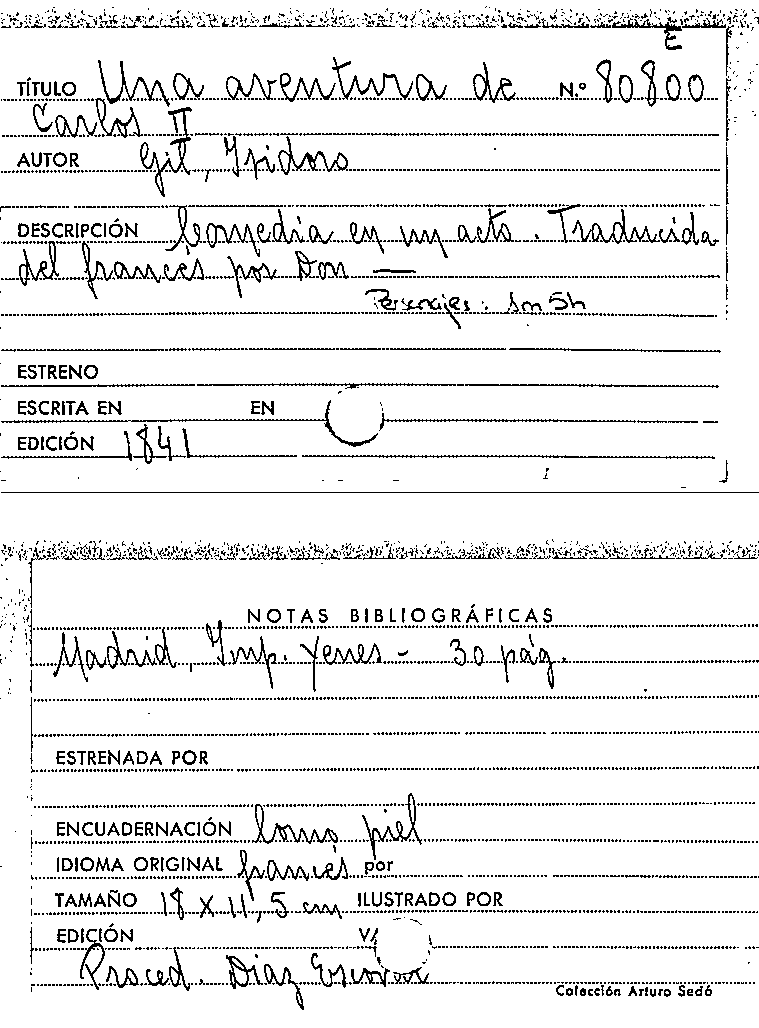 E
TÍTULO Una aventura de N.º 80800
Carlos II
AUTOR Gil, Isidoro
DESCRIPCIÓN Comedia en un acto. Traducida
del francés por Don —
Personajes: 1m 5h
ESTRENO
ESCRITA EN EN
EDICIÓN 1841
NOTAS BIBLIOGRÁFICAS
Madrid, Imp. Yenes - 30 pág.
ESTRENADA POR
ENCUADERNACIÓN Lomo piel
IDIOMA ORIGINAL francés por
TAMAÑO 18 x 11,5 cm ILUSTRADO POR
EDICIÓN
Proced. Diaz Escovar
Colección Arturo Sedó